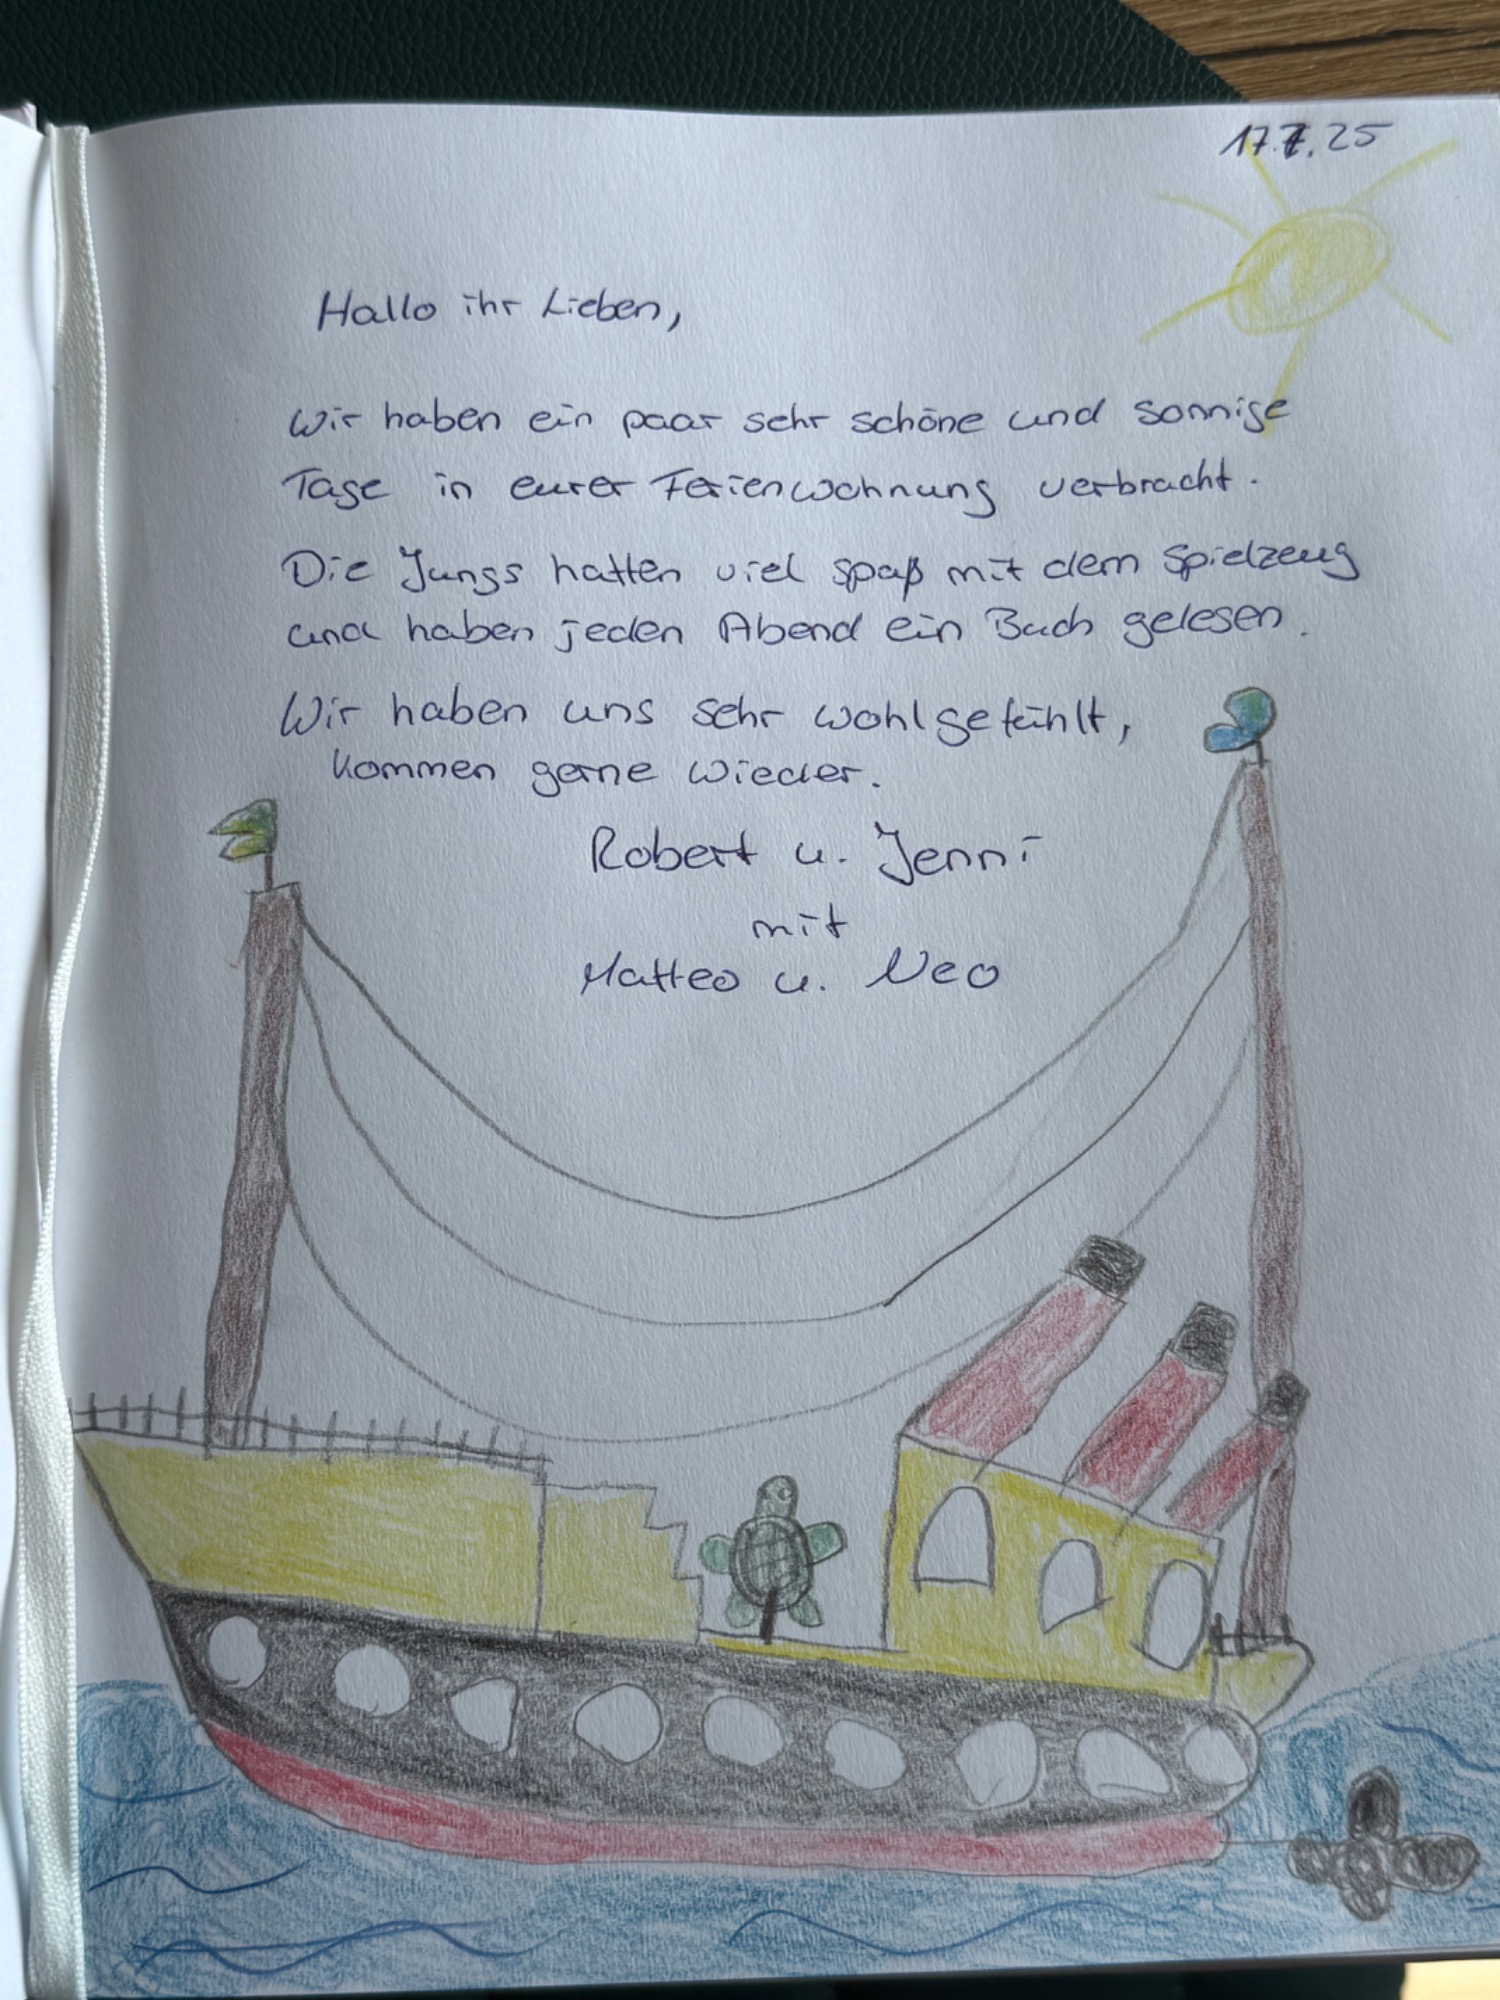 17.7.25
Hallo ihr Lieben,
Wir haben ein paar sehr schöne und sonnige
Tage in eurer Ferienwohnung verbracht.
Die Jungs hatten viel spaß mit dem Spielzeug
und haben jeden Abend ein Buch gelesen.
Wir haben uns sehr wohlgefühlt,
kommen gerne wieder.
Robert u. Jenni
mit
Matteo u. Neo